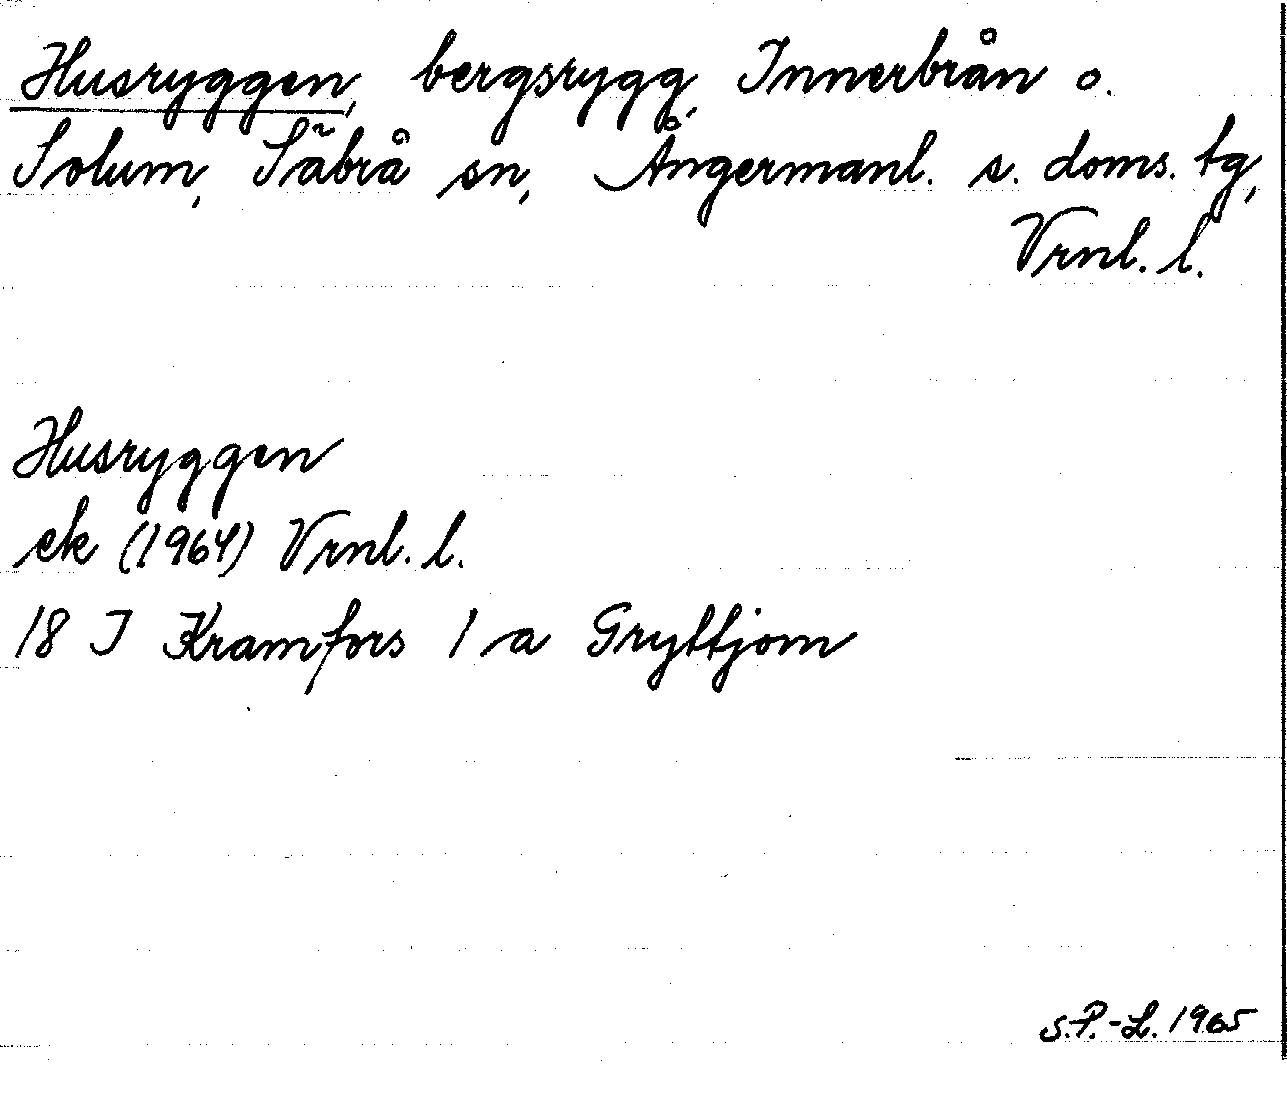 Husryggen, bergsrygg, Innerbrån o.
Solum, Säbrå sn, Ångermanl. s. doms. tg,
Vrnl. l.
Husryggen
ek (1964) Vrnl. l.
18 I Kramfors 1 a Gryttjom
S.P.-L. 1965